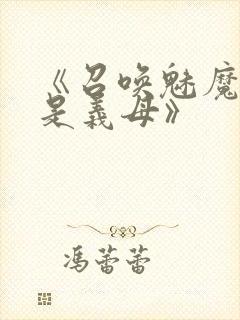 《召唤魅魔
是义母》
冯蕾蕾